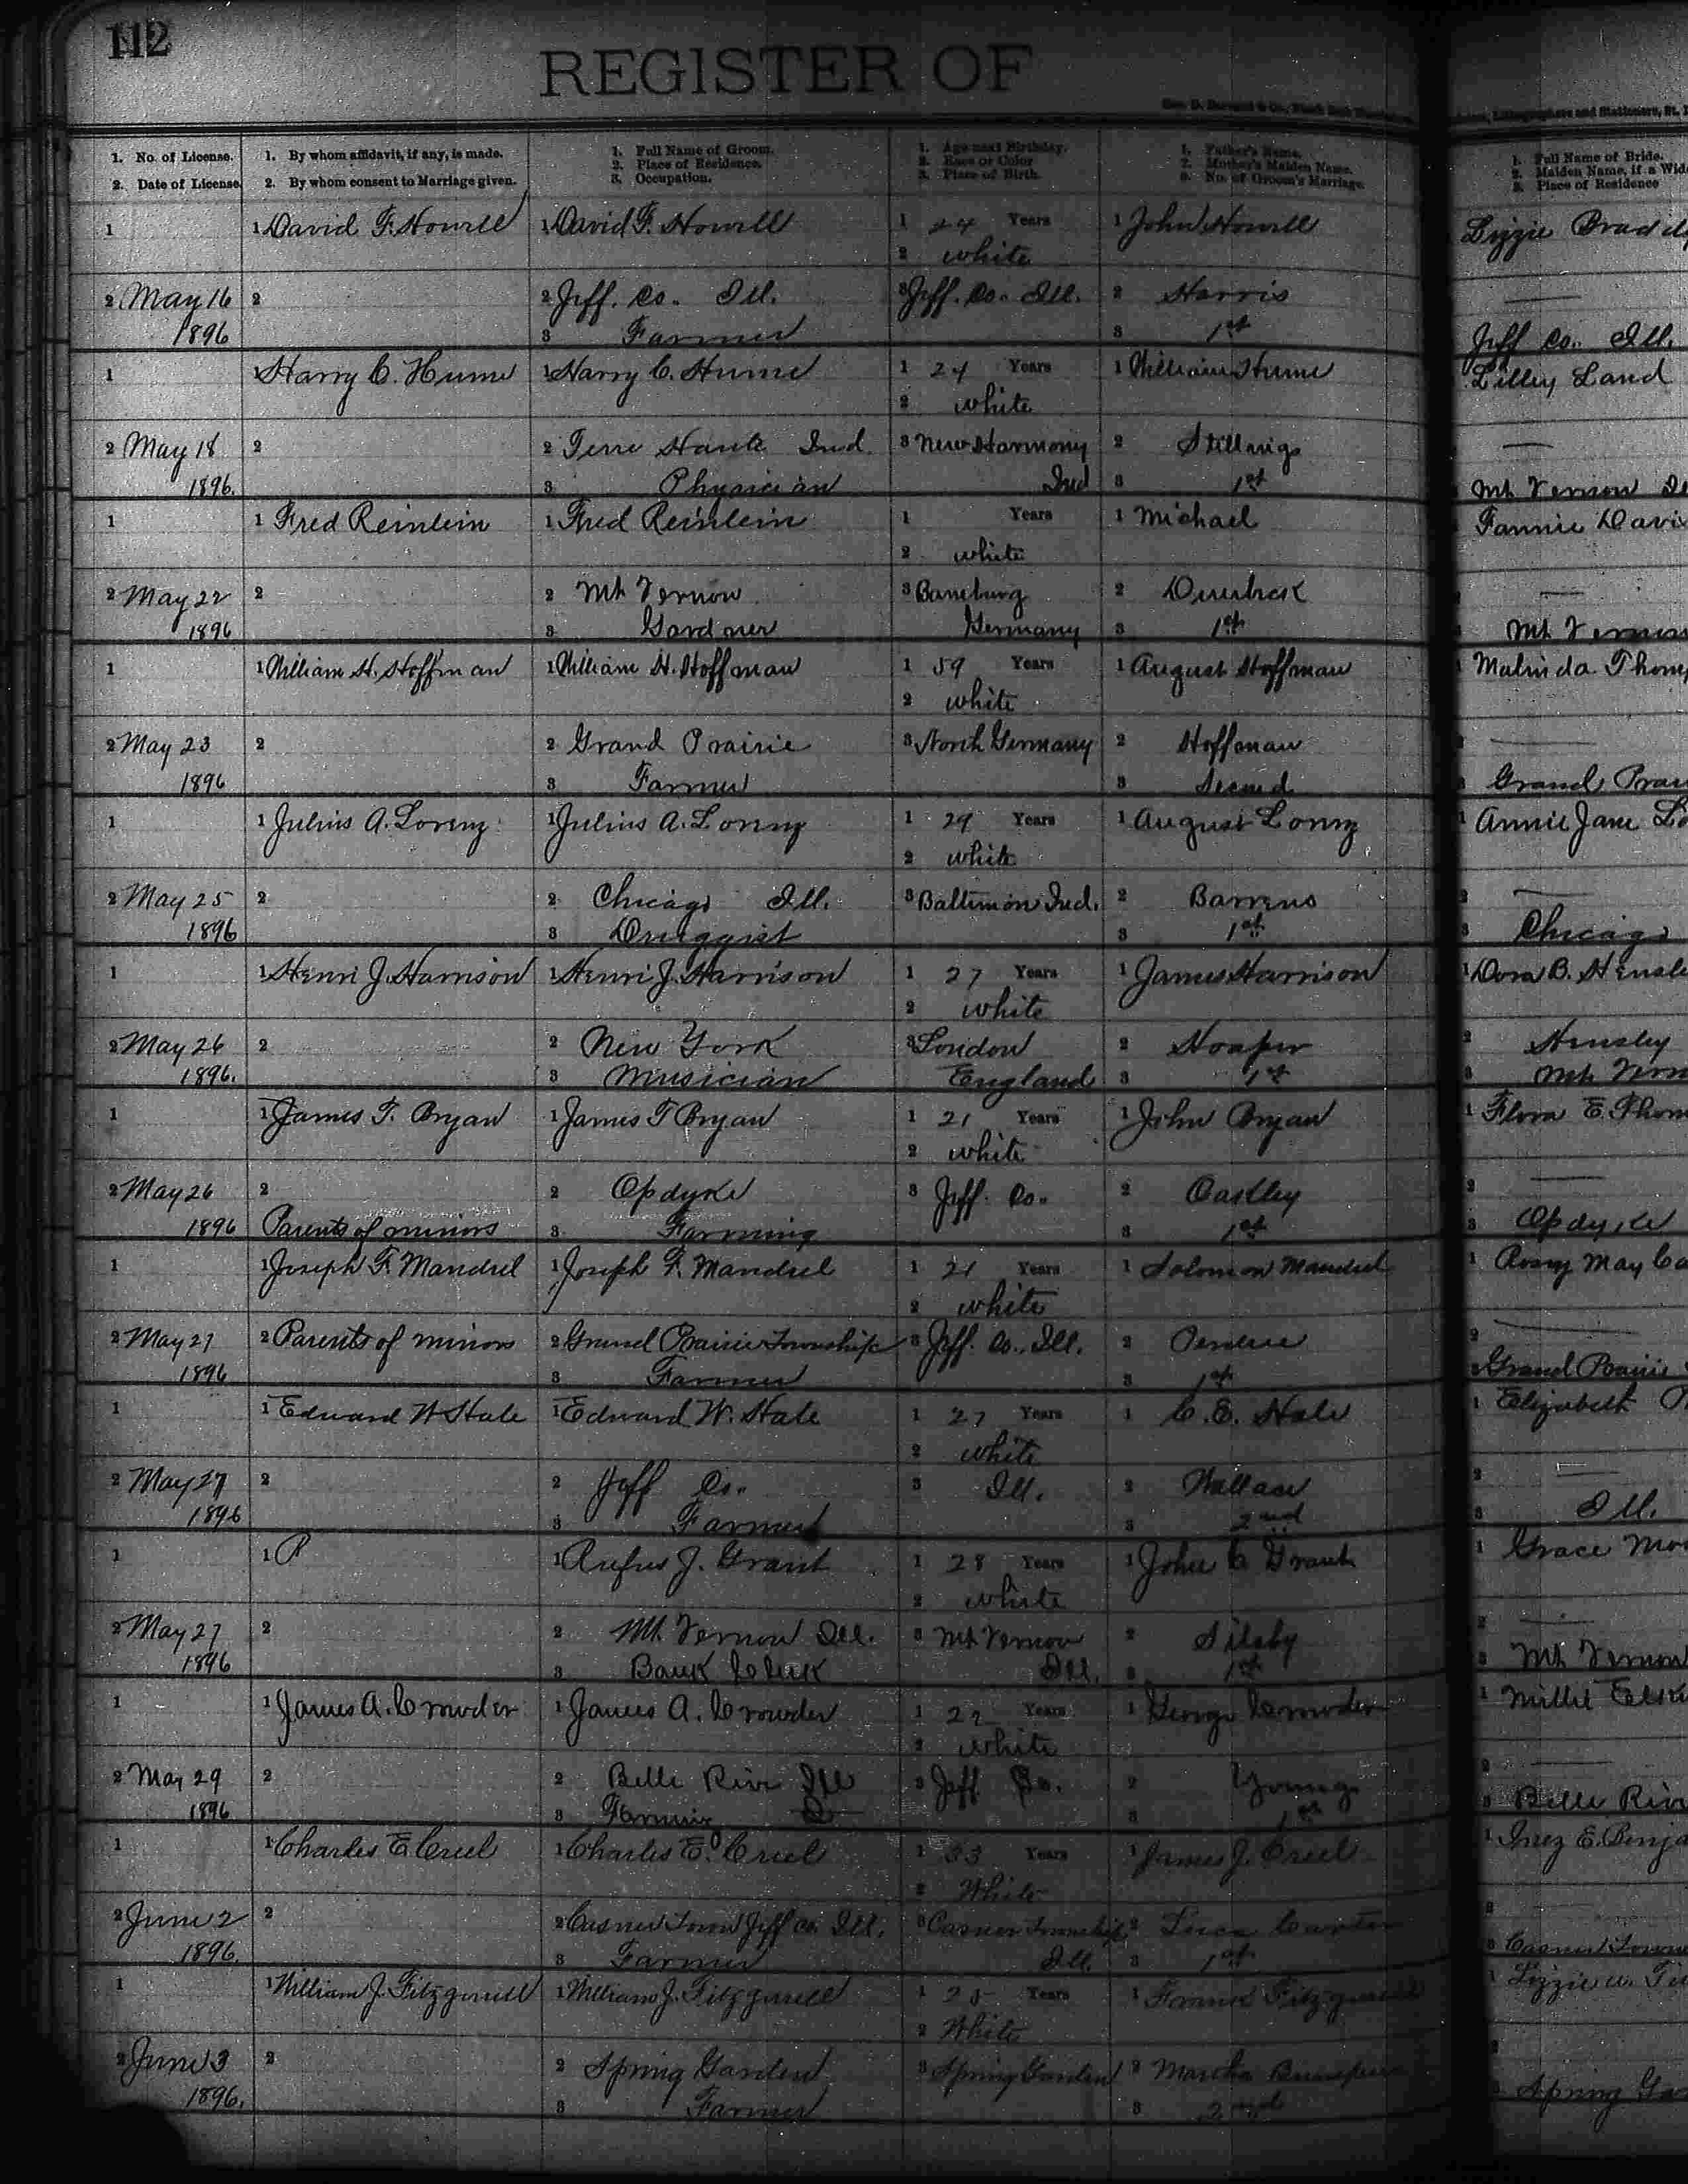 112
REGISTER OF
1. No. of License. 1. By whom affidavit, if any, is made. 1. Full Name of Groom. 1. Age next Birthday. 1. Father's Name. 1. Full Name of Bride.
2. Date of License. 2. By whom consent to Marriage given. 2. Place of Residence. 2. Race or Color 2. Mother's Maiden Name. 2. Maiden Name, if a
3. Occupation. 3. Place of Birth. 3. No. of Groom's Marriage. 3. Place of Residence
1 1 David F. Howell 1 David F. Howell 1 24 Years 1 John Howell Lizzie
2 white
2 May 16 2 2 Jeff. Co. Ill. 3 Jeff. Co. Ill. 2 Harris
1896 3 Farmer 3 1st Jeff Co. Ill.
1 1 Harry C. Hume 1 Harry C. Hume 1 24 Years 1 William Hume Lilley Land
2 white
2 May 18 2 2 Terre Haute Ind. 3 New Harmony 2 Stillings
1896. 3 Physician Ind 3 1st Mt Vernon
1 1 Fred Reinlein 1 Fred Reinlein 1 Years 1 Michael Fannie
2 white
2 May 22 2 2 Mt Vernon 3 2
1896 3 Gardner Germany 3 1st Mt Vernon
1 1 William H. Hoffman 1 William H. Hoffman 1 59 Years 1 August Hoffman 1 Malinda
2 white
2 May 23 2 2 Grand Prairie 3 North Germany 2 Hoffman
1896 3 Farmer 3 Second 3 Grand
1 1 Julius A. Lorenz 1 Julius A. Lorenz 1 29 Years 1 August Lorenz 1 Annie Jane
2 white
2 May 25 2 2 Chicago Ill. 3 2 Barrens 2
1896 3 Druggist 3 1st 3 Chicago
1 1 Henri J. Harrison 1 Henri J. Harrison 1 27 Years 1 James Harrison 1 Dora B.
2 white
2 May 26 2 2 New York 3 London 2 Hooper 2 Hensley
1896. 3 Musician England 3 1st 3 Mt
1 1 James T. Bryan 1 James T Bryan 1 21 Years 1 John Bryan 1 Flora E.
2 white
2 May 26 2 2 Opdyke 3 Jeff. Co. 2 Castley 2
1896 Parents of minors 3 Farming 3 1st 3 Opdyke
1 1 Joseph F. Mandrel 1 Joseph F. Mandrel 1 21 Years 1 Solomon Mandrel 1 May
2 white
2 May 27 2 Parents of minors 2 Grand Prairie Township 3 Jeff. Co., Ill. 2 2
1896 3 Farmer 3 1st 3 Grand Prairie
1 1 Edward W Hale 1 Edward W. Hale 1 27 Years 1 C. E. Hale 1 Elizabeth
2 white
2 May 27 2 2 Jeff Co. 3 Ill. 2 Wallace 2
1896 3 Farmer 3 2nd 3 Ill.
1 1 R 1 Rufus J. Grant 1 28 Years 1 John C Grant 1 Grace
2 white
2 May 27 2 2 Mt. Vernon Ill. 3 Mt Vernon 2 Silsby 2
1896 3 Bank Clerk Ill. 3 1st 3 Mt Vernon
1 1 James A. Crowder 1 James A. Crowder 1 22 Years 1 George Crowder 1 Millie
2 white
2 May 29 2 2 Belle Rive Ill 3 Jeff Co. 2 Young 2
1896 3 Farmer 3 1st 3 Belle
1 1 Charles E. Criel 1 Charles E. Criel 1 33 Years 1 James J. Criel 1 Inez E.
2 White
2 June 2 2 2 Casner Town Jeff Co. Ill. 3 Casner Township 2 Carter 2
1896. 3 Farmer Ill. 3 1st 3 Casner
1 1 William J. Fitzgerrell 1 William J. Fitzgerrell 1 Years 1 Fitzgerrell 1 Lizzie
2 White
2 June 3 2 2 Spring Garden 3 Spring Garden 2 Martha
1896. 3 Farmer 3 2nd Spring